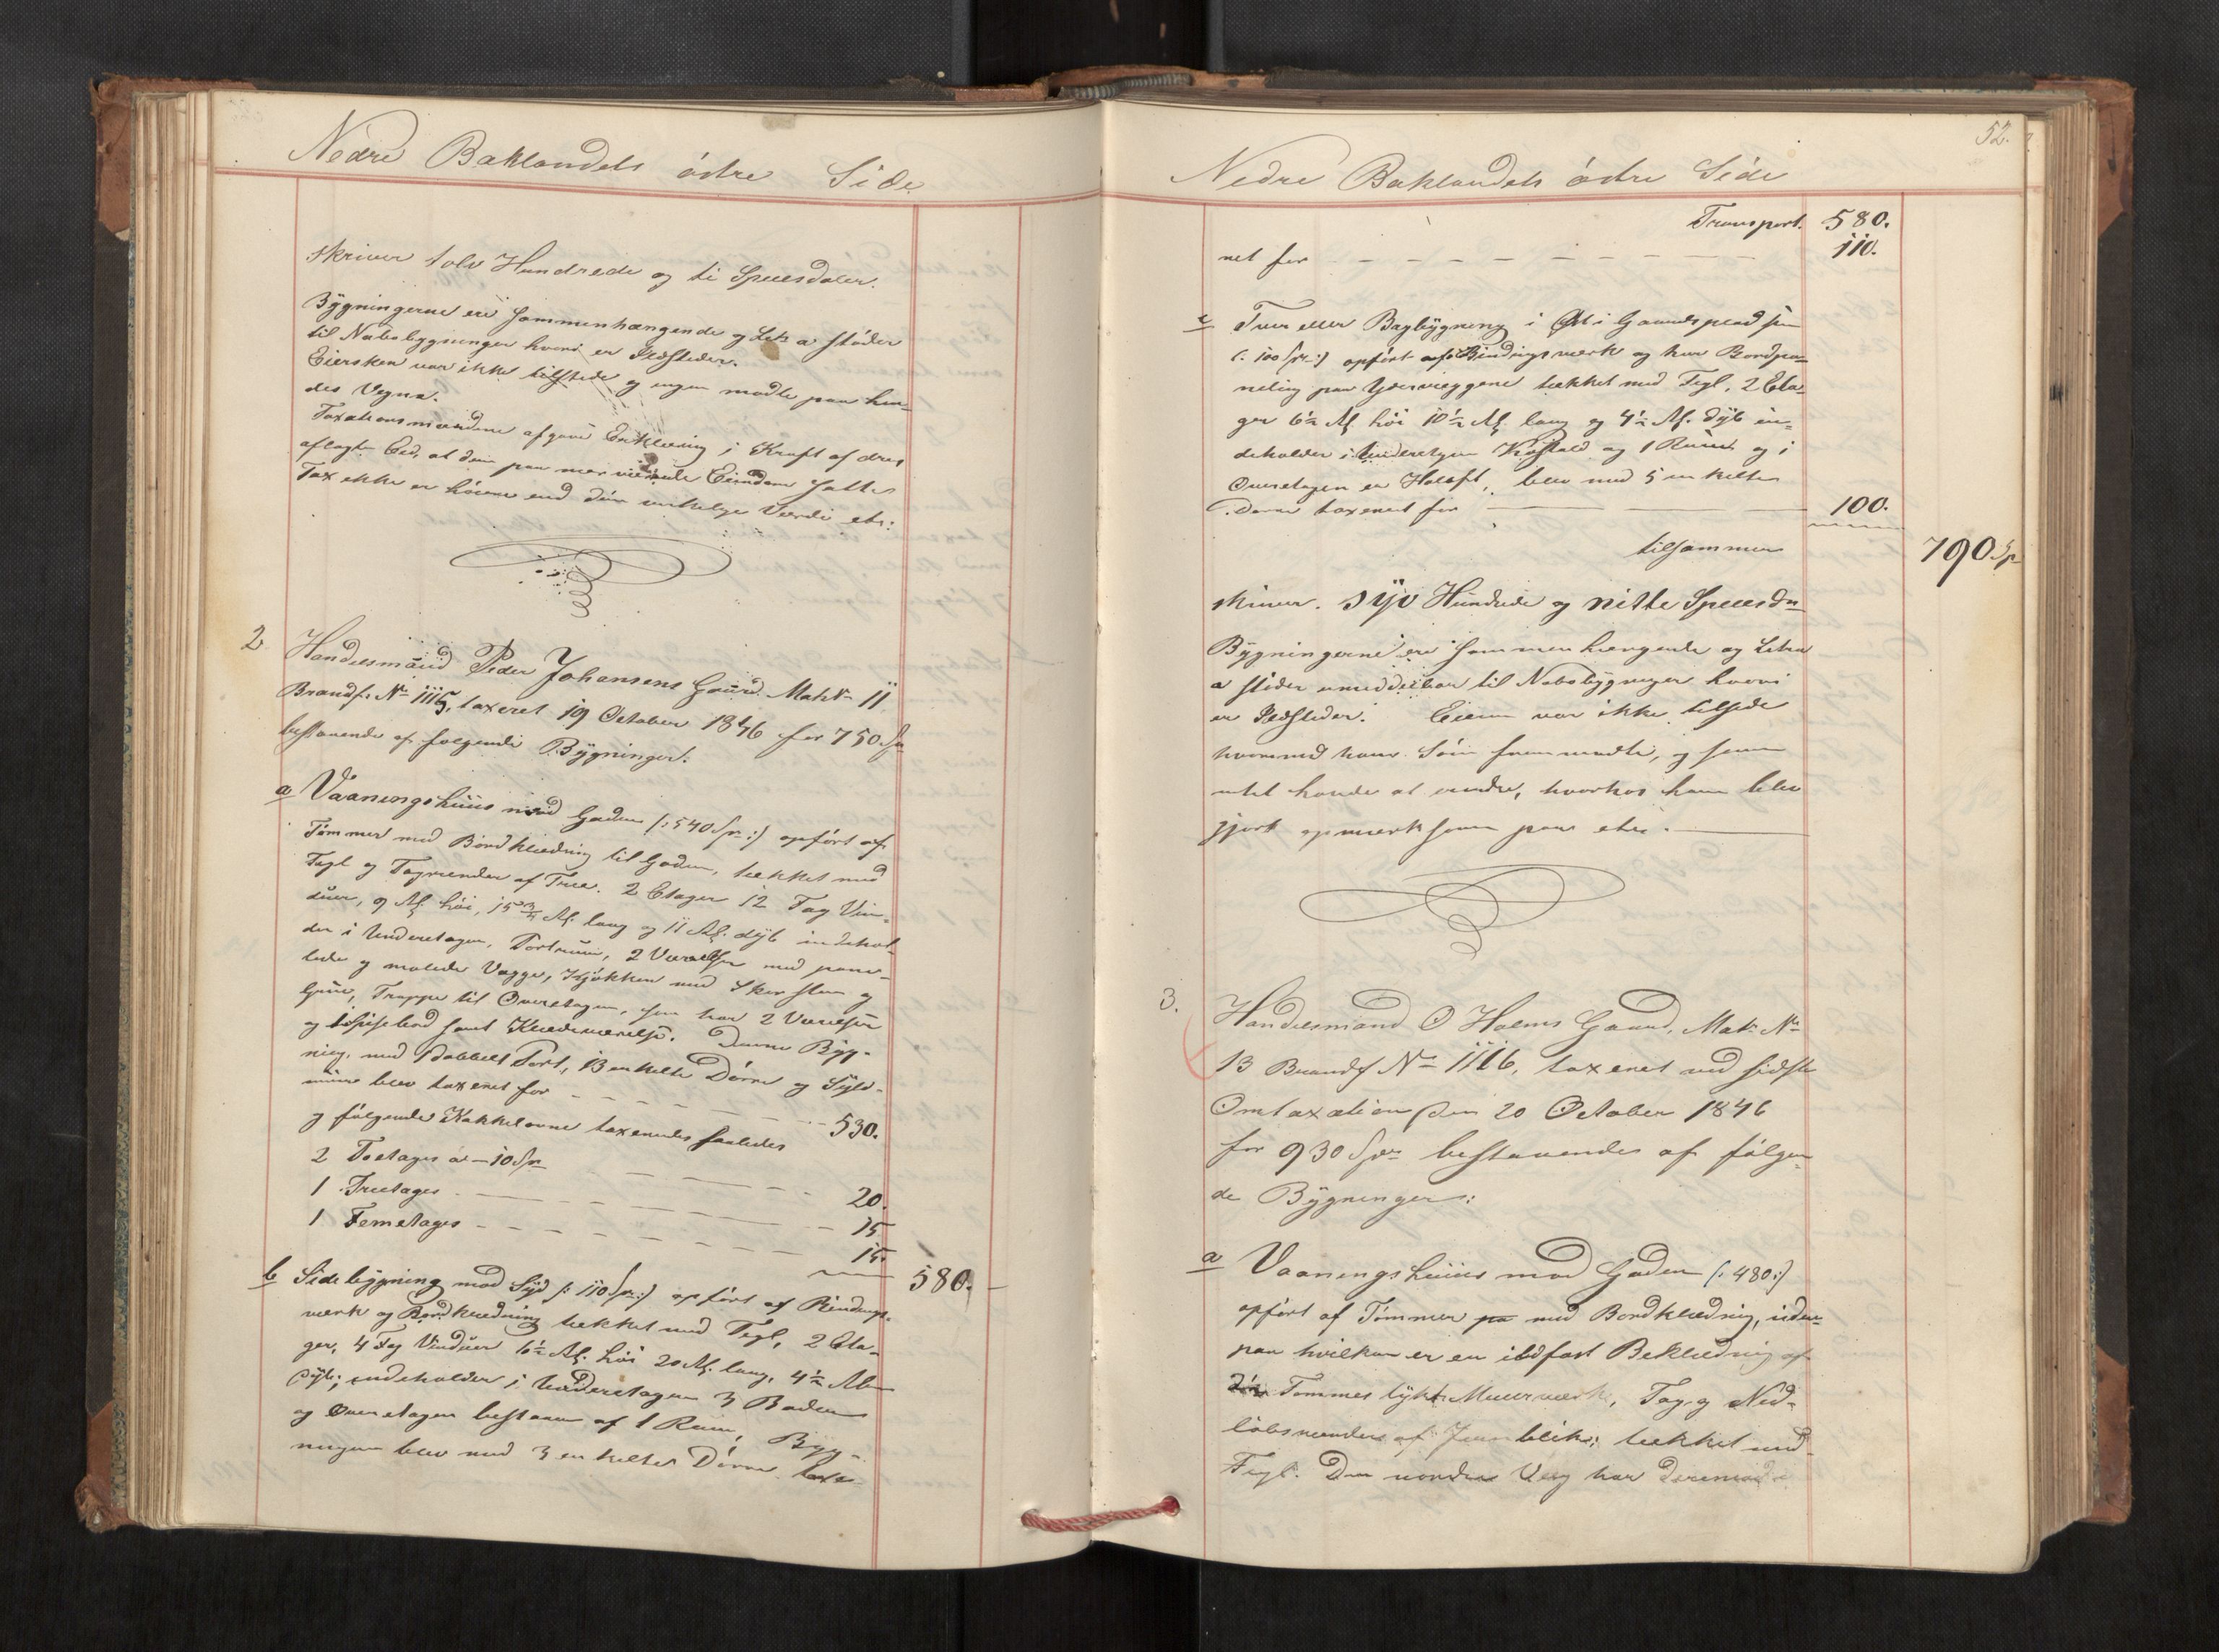 Nedre Baklandets östre Side
skriver tolv Hundrede og ti Speciesdaler.
Bygningerne ere sammenhængende og Litr a stöder
til Nabobygninger hvori er Ildsteder.
Eiersken var ikke tilstede og ingen mödte paa hen-
des Vegne.
Taxationsmændene afgave Erklæring i Kraft af deres
aflagte Eed, at den paa nærværende Eiendom satte
Tax ikke er höiere end dens virkelige Værdi etc:
2 Handelsmand Peder Johansens Gaard. Matr No 11
Brandf. No 1115, taxeret 19 October 1846 for 750 Sp
bestaaende af følgende Bygninger:
a Vaaningshuus mod Gaden (: 540 Sp :) opfört af
Tömmer med Bordklædning til Gaden, tækket med
Tegl og Tagrender af Træ. 2 Etager 12 Fag Vin-
duer, 9 Al. höi, 15 3/4 Al. lang og 11 Al. dyb indehol-
der i Underetagen, Portrum, 2 Værelser med pane-
lede og malede Vægge, Kjökken med Skorsteen og
Gruve, Trappe til Overetagen, som har 2 Værelser
og Spisebod samt Klædeværelse. Denne Byg-
ning med 1 dobbelt Port, 13 enkelte Dörre og Syld-
muur blev taxeret for - - - 530.
og fölgende Kakkelovne taxeredes saaledes
2 Toetages a - 10 Sp - - - 20.
1 Treetages - - - 15
1 Femetages - - - 15.
580.
b Sidebygning mod Syd (: 110 Sp :) opfört af Bindings-
værk og Bordklædning tækket med Tegl, 2 Eta-
ger, 4 Fag Vinduer 6 1/2 Al. höi 20 Al. lang, 4 1/2 Alen
dyb; indeholder i Underetagen 3 Boder
og Overetagen bestaar af 1 Rum, Byg-
ningen blev med 3 enkelte Dörre taxe-
52.
Nedre Baklandets östre Side
Transport. 580.
ret for - - - 110.
c Tvær eller Bagbygning i Öst i Gaardsplads
(: 100 Sp :) opfört af Bindingsværk og har Bordpa-
neling paa Ydervæggene tækket med Tegl, 2 Eta-
ger 6 1/2 Al höi 10 1/2 Al. lang og 4 1/2 Al. dyb in-
deholder i Underetagen Köstald og 1 Rum og i
Overetagen er Höloft, blev med 5 enkelte
Dörre taxeret for - - - 100.
tilsammen 790 Sp
skriver syv Hundrede og nitte Speciesdr
Bygningerne ere sammenhængende og Litra
a stöder umiddelbar til Nabobygninger hvori
er Ildsteder. Eieren var ikke tilstede
hvorimod hans Sön fremmödte, og som
intet havde at erindre, hvorhos han blev
gjort opmærksom paa etc.
3. Handelsmand O Holms Gaard, Matr No
13 Brandf No 1116, taxeret ved sidste
Omtaxation den 20 October 1846
for 930 Spdr bestaaende af fölgen-
de Bygninger:
a Vaaningshuus mod Gaden (: 480 :)
opfört af Tömmer med Bordklædning, uden-
paa hvilken er en ildfast Beklædning af
Tommes tykt Muurværk, Tag og Ned-
löbsrender af Jernblik; tækket med
Tegl. Den nordre Væg har derimod